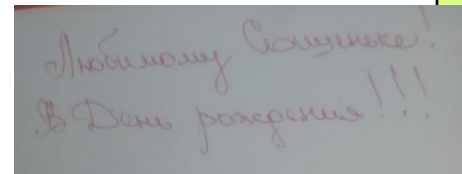 Любимому Сашеньке!
В День рождения!!!